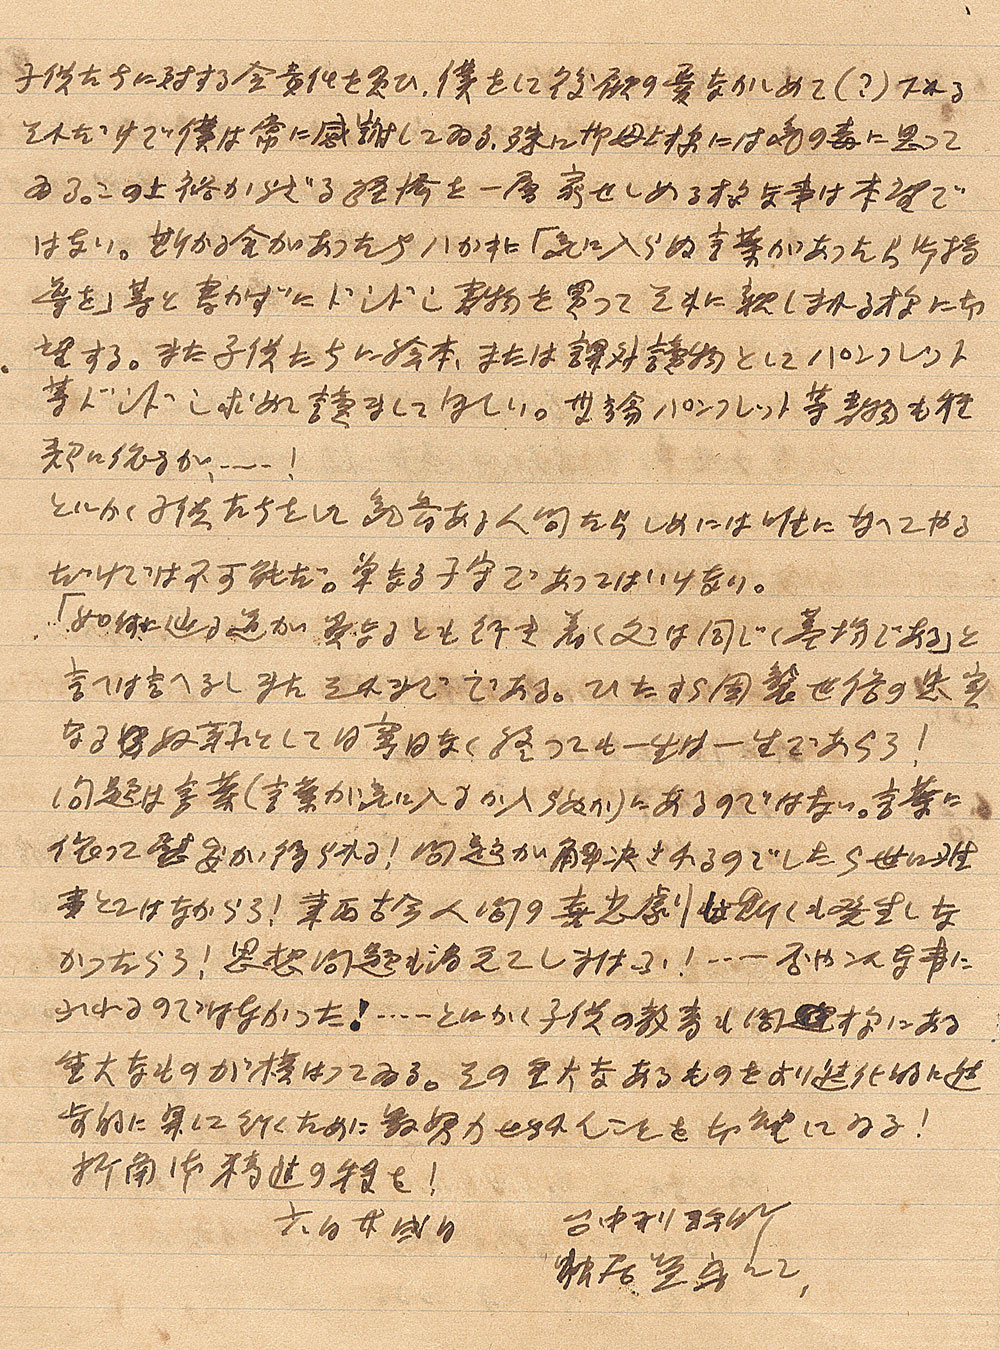 子供たちに対する全責任を負ひ、僕をして後顧の憂なからしめて(?)下れる
それだけで僕は常に感謝してゐる、殊に御母上様には気の毒に思って
ゐる。この上裕かならざる経済を一層窮せしめる様な事は本望で
はない。斯かる金があったら「気に入らぬ言葉があったら
等を」等と書かずにドシドシ書物を買ってそれに親しまれる様に切
望する。また子供たちに絵本、または課外読物としてパンフレット
等ドシドシ求めて読ましてほしい。勿論パンフレット等書物も種
類に依るが、……!
とにかく子供たちをして気骨ある人間たらしめには唯になってやる
だけでは不可能だ。単なる子守であってはいけない。
「如何に辿る道が異なるとも行き着く処は同じく墓場である」と
言へば言へるしまたそれまでである。ひたすら因襲世俗の忠実
なる奴隷としては害はなく終っても一生は一生であらう!
問題は言葉(言葉が気に入るか入らぬか)にあるのではない。言葉に
依って慰安が得られる!問題が解決されるのでしたら世に難
事とてはなからう!東西古今人間の喜悲劇は斯くも発生しな
かったらう!思想問題も消えてしまはふ!……否やこんな事に
ふれるのではなかった!……とにかく子供の教育も問題様にある
重大なものが横はってゐる。その重大なあるものをより進化的に進
歩的に果して行くために努力せられんことを切望してゐる!
折南体精進の程を!
六月廿 日 台中刑務所
独居 にて、